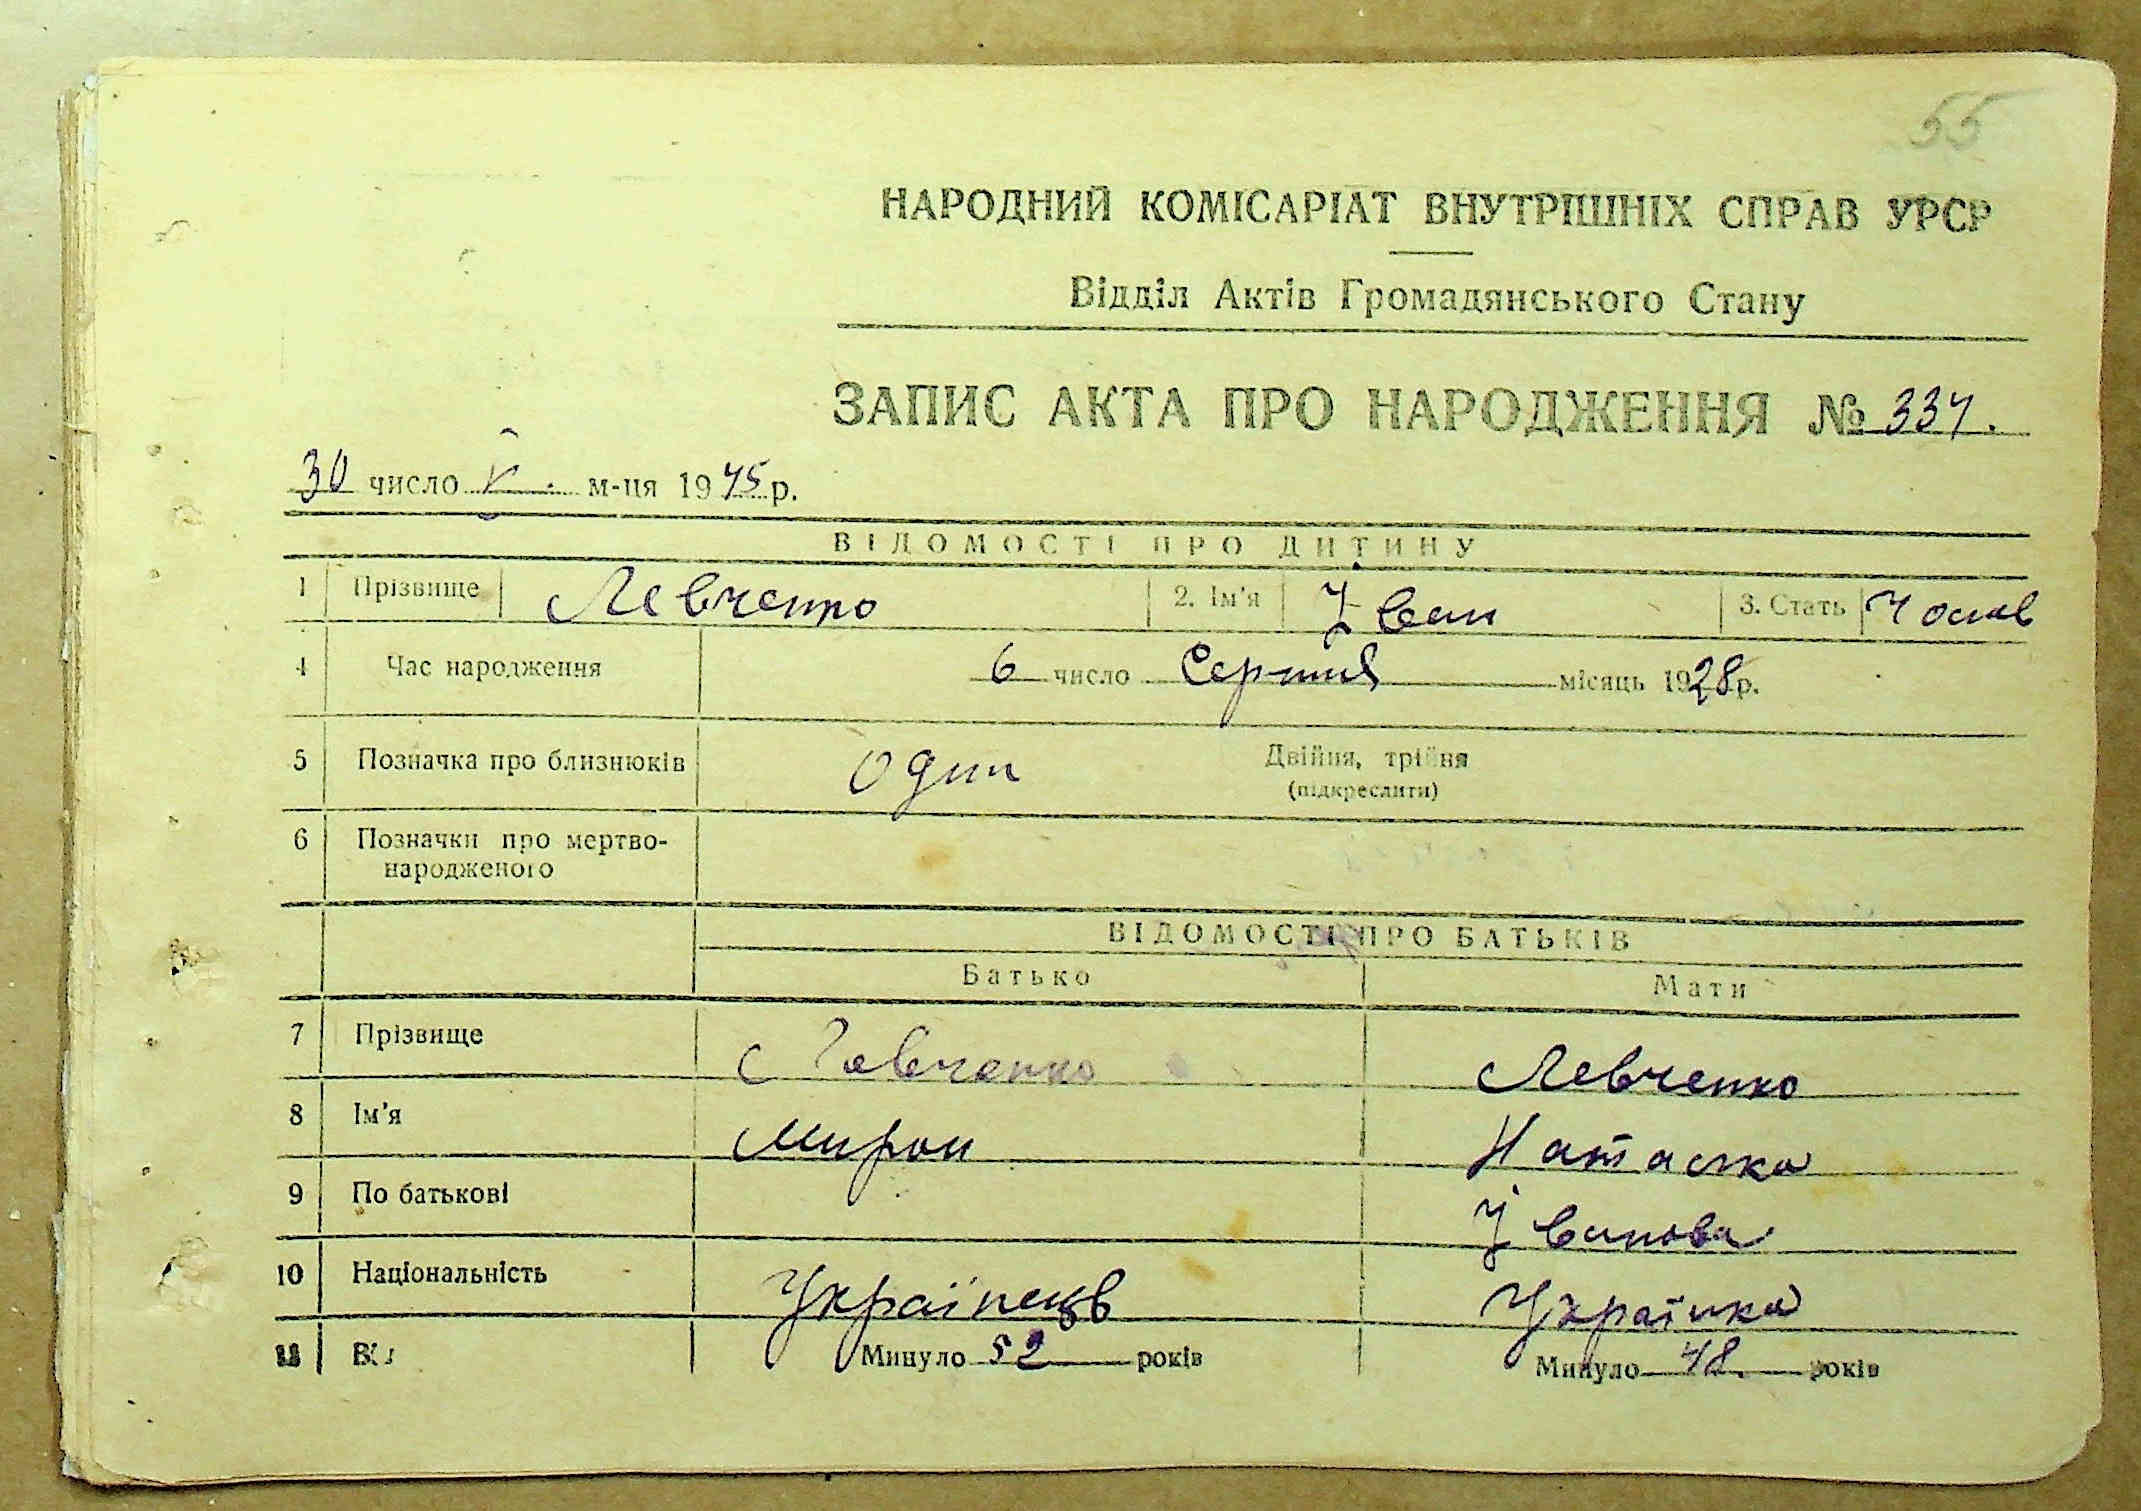 55
НАРОДНИЙ КОМІСАРІАТ ВНУТРІШНІХ СПРАВ УРСР
Відділ Актів Громадянського Стану
ЗАПИС АКТА ПРО НАРОДЖЕННЯ № 334.
30 число V. м-ця 1945 р.
ВІДОМОСТІ ПРО ДИТИНУ
1 Прізвище Левченко 2. Ім'я Іван 3. Стать Чолов
4 Час народження 6 число Серпня місяць 1928 р.
5 Позначка про близнюків Один Двійня, трійня
(підкреслити)
6 Позначки про мертво-
народженого
ВІДОМОСТІ ПРО БАТЬКІВ
Батько Мати
7 Прізвище Левченко Левченко
8 Ім'я Мирон Наталка
9 По батькові Іванова
10 Національність Українець Українка
11 Минуло 52 років Минуло 48. років